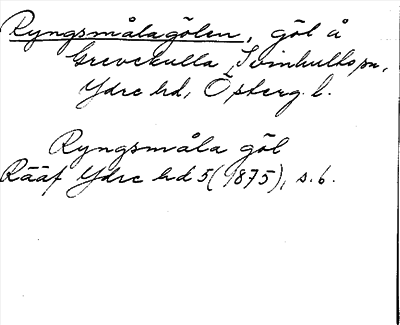 Ryngsmålagölen, göl å
Grevekulla, Svinhults sn,
Ydre hd, Österg. l.
Ryngsmåla göl
Rääf Ydre hd 5 (1875), s. 6.